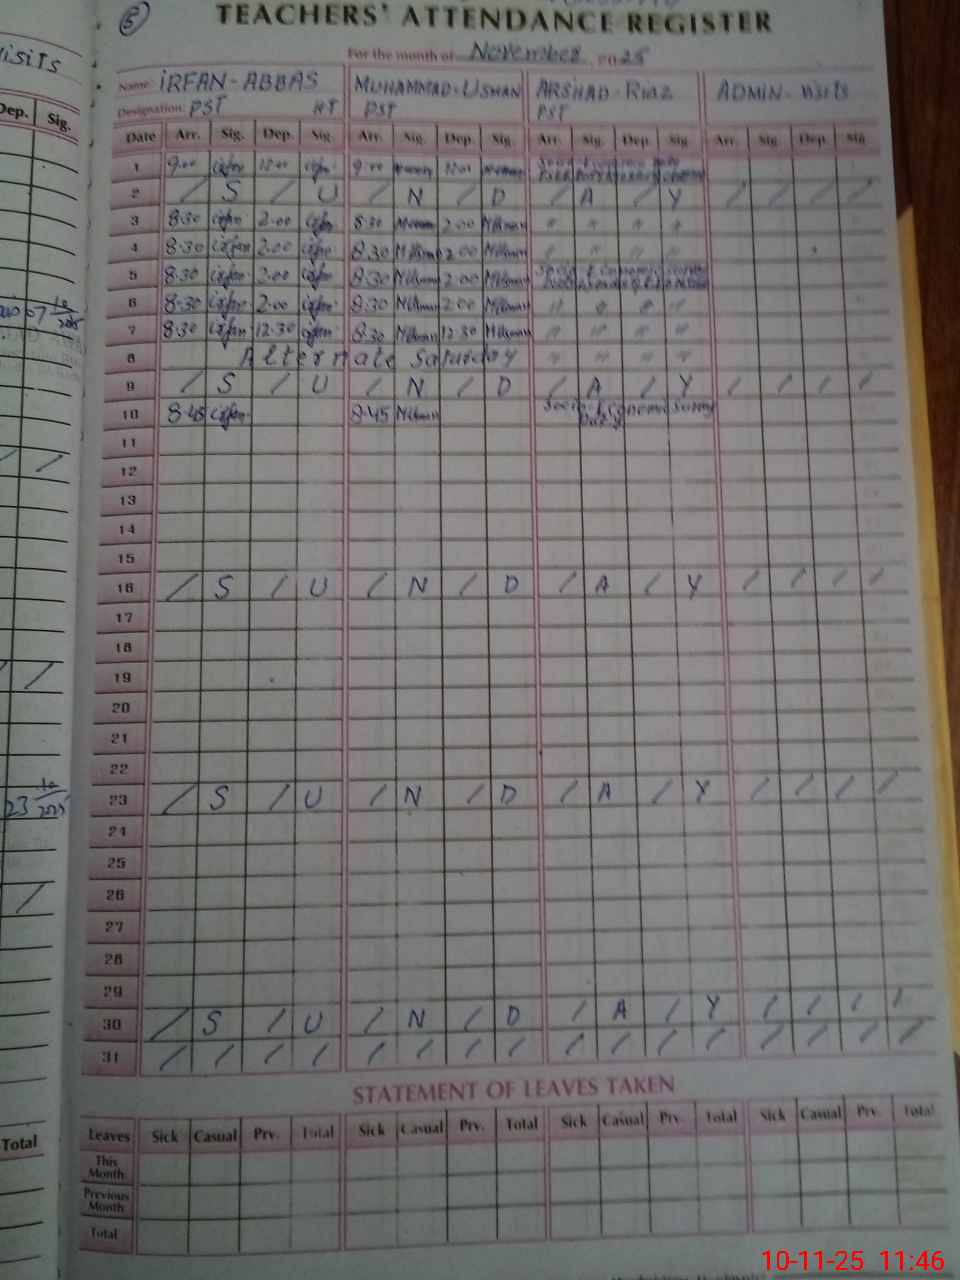 5
TEACHERS' ATTENDANCE REGISTER
For the month of November 2025
isits
Name: IRFAN-ABBAS MUHAMMAD-USMAN ARSHAD-Riaz ADMIN-visits
Designation: PST H.T PST PST
Dep. Sig.
Date Arr. Sig. Dep. Sig. Arr. Sig. Dep. Sig. Arr. Sig. Dep. Sig. Arr. Sig. Dep. Sig.
1 9.00 irfan 12.00 irfan 9.00 12.00
2 / S / U / N / D / A / Y / / / /
3 8:30 irfan 2.00 irfan 8:30 2.00 " " " "
4 8:30 irfan 2.00 irfan 8:30 MUsman 2.00 MUsman " " " "
5 8:30 irfan 2.00 irfan 8:30 MUsman 2.00 MUsman
6 8:30 irfan 2.00 irfan 8:30 MUsman 2.00 MUsman " " " "
7 8:30 irfan 12:30 irfan 8:30 MUsman 12:30 MUsman " " " "
8 Alternate Saturday " " " "
9 / S / U / N / D / A / Y / / / /
10 8:45 irfan 8:45 MUsman Socio Economic Survey
Duty
11
12
13
14
15
16 / S / U / N / D / A / Y / / / /
17
18
19
20
21
22
23 / S / U / N / D / A / Y / / / /
24
25
26
27
28
29
30 / S / U / N / D / A / Y / / / /
31 / / / / / / / / / / / / / / / /
07 10/2025
23 10/2025
STATEMENT OF LEAVES TAKEN
Total
Leaves Sick Casual Prv. Total Sick Casual Prv. Total Sick Casual Prv. Total Sick Casual Prv. Total
This Month
Previous Month
Total
10-11-25 11:46